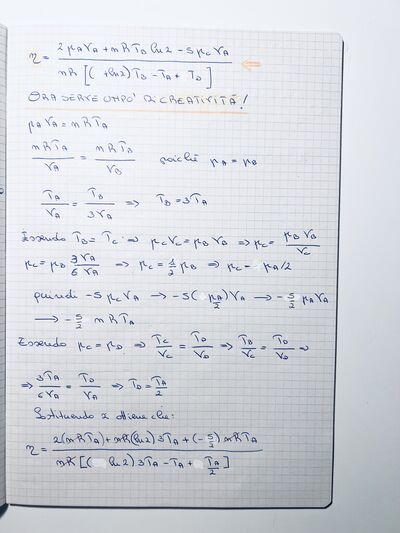 η = 2 pA VA + nRTB ln2 - 5 pC VA
nR [( + ln2) TB - TA + TD ]
ORA SERVE UN PO' DI CREATIVITÀ!
pA VA = nRTA
nRTA / VA = nRTB / VB poiché pA = pB
TA / VA = TB / 3VA ⇒ TB = 3TA
Essendo TB = TC ⇒ pC VC = pB VB ⇒ pC = pB VB / VC
pC = pB 3VA / 6VA ⇒ pC = 1/2 pB ⇒ pC = pA/2
quindi -5 pC VA → -5 ( pA/2 ) VA → - 5/2 pA VA
→ - 5/2 nRTA
Essendo pC = pD ⇒ TC / VC = TD / VD ⇒ TB / VC = TD / VD ⇒
⇒ 3TA / 6VA = TD / VA ⇒ TD = TA / 2
Sostituendo si ottiene che:
η = 2(nRTA) + nR(ln2) 3TA + (- 5/2) nRTA
nR [( ln2) 3TA - TA + TA/2 ]